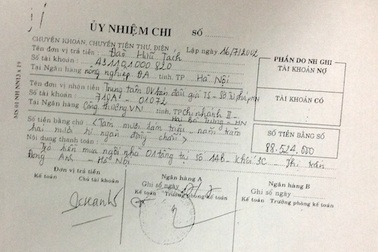 ỦY NHIỆM CHI SỐ
CHUYỂN KHOẢN, CHUYỂN TIỀN THƯ, ĐIỆN Lập ngày 16/7/2002
Tên đơn vị trả tiền Đào Hữu Tạch
Số tài khoản: 4311 01000 820
Tại Ngân hàng nông nghiệp ĐA tỉnh, TP Hà Nội
Tên đơn vị nhận tiền Trung tâm
Số tài khoản 01072
Tại Ngân hàng Công thương VN tỉnh, TP chi nhánh II
Số tiền bằng chữ (Tám mươi tám triệu năm trăm
hai mươi ngàn đồng chẵn)
Nội dung thanh toán:
Trả tiền mua ngôi nhà tầng số 14B Khối 3C Thị trấn
Đông Anh - Hà Nội
PHẦN DO NH GHI
TÀI KHOẢN NỢ
TÀI KHOẢN CÓ
SỐ TIỀN BẰNG SỐ
Đơn vị trả tiền
Kế toán Chủ tài khoản
Ngân hàng A
Ghi sổ ngày
Kế toán Trưởng phòng kế toán
Ngân hàng B
Ghi sổ ngày
Kế toán Trưởng phòng kế toán